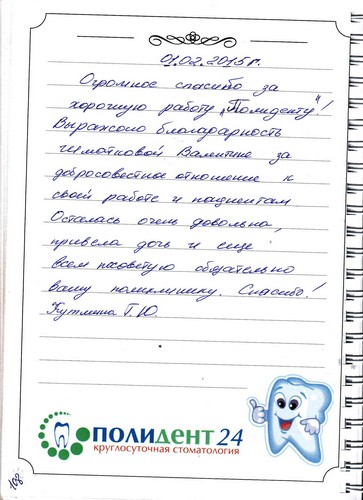 01.02.2015г.
Огромное спасибо за
хорошую работу „Полиденту"!
Выражаю благодарность
Гиматковой Валентине за
добросовестное отношение к
своей работе и пациентам
Осталась очень довольна,
привела дочь и еще
всем посоветую обязательно
вашу поликлинику. Спасибо!
Т.Ю.
ПОЛИДЕНТ 24
круглосуточная стоматология
108